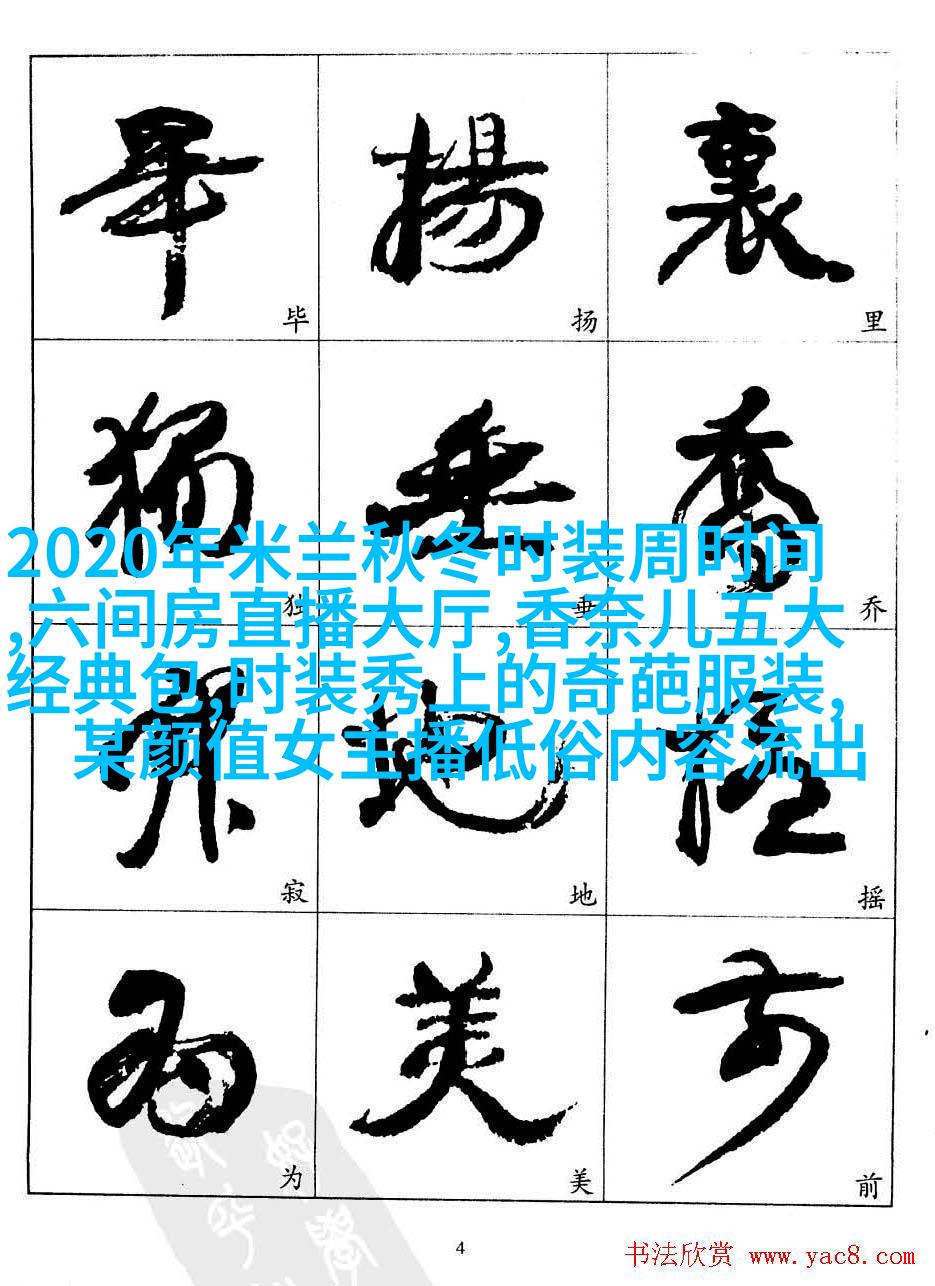 畢 揚 裏
毕 扬 里
獨 垂 喬
独 垂 乔
2020年米兰秋冬时装周时间
,六间房直播大厅,香奈儿五大
经典包,时装秀上的奇葩服装,
某颜值女主播低俗内容流出
寂 地 摇
寂 地 摇
为 美 前
为 美 前
4
书法欣赏 www.yac8.com